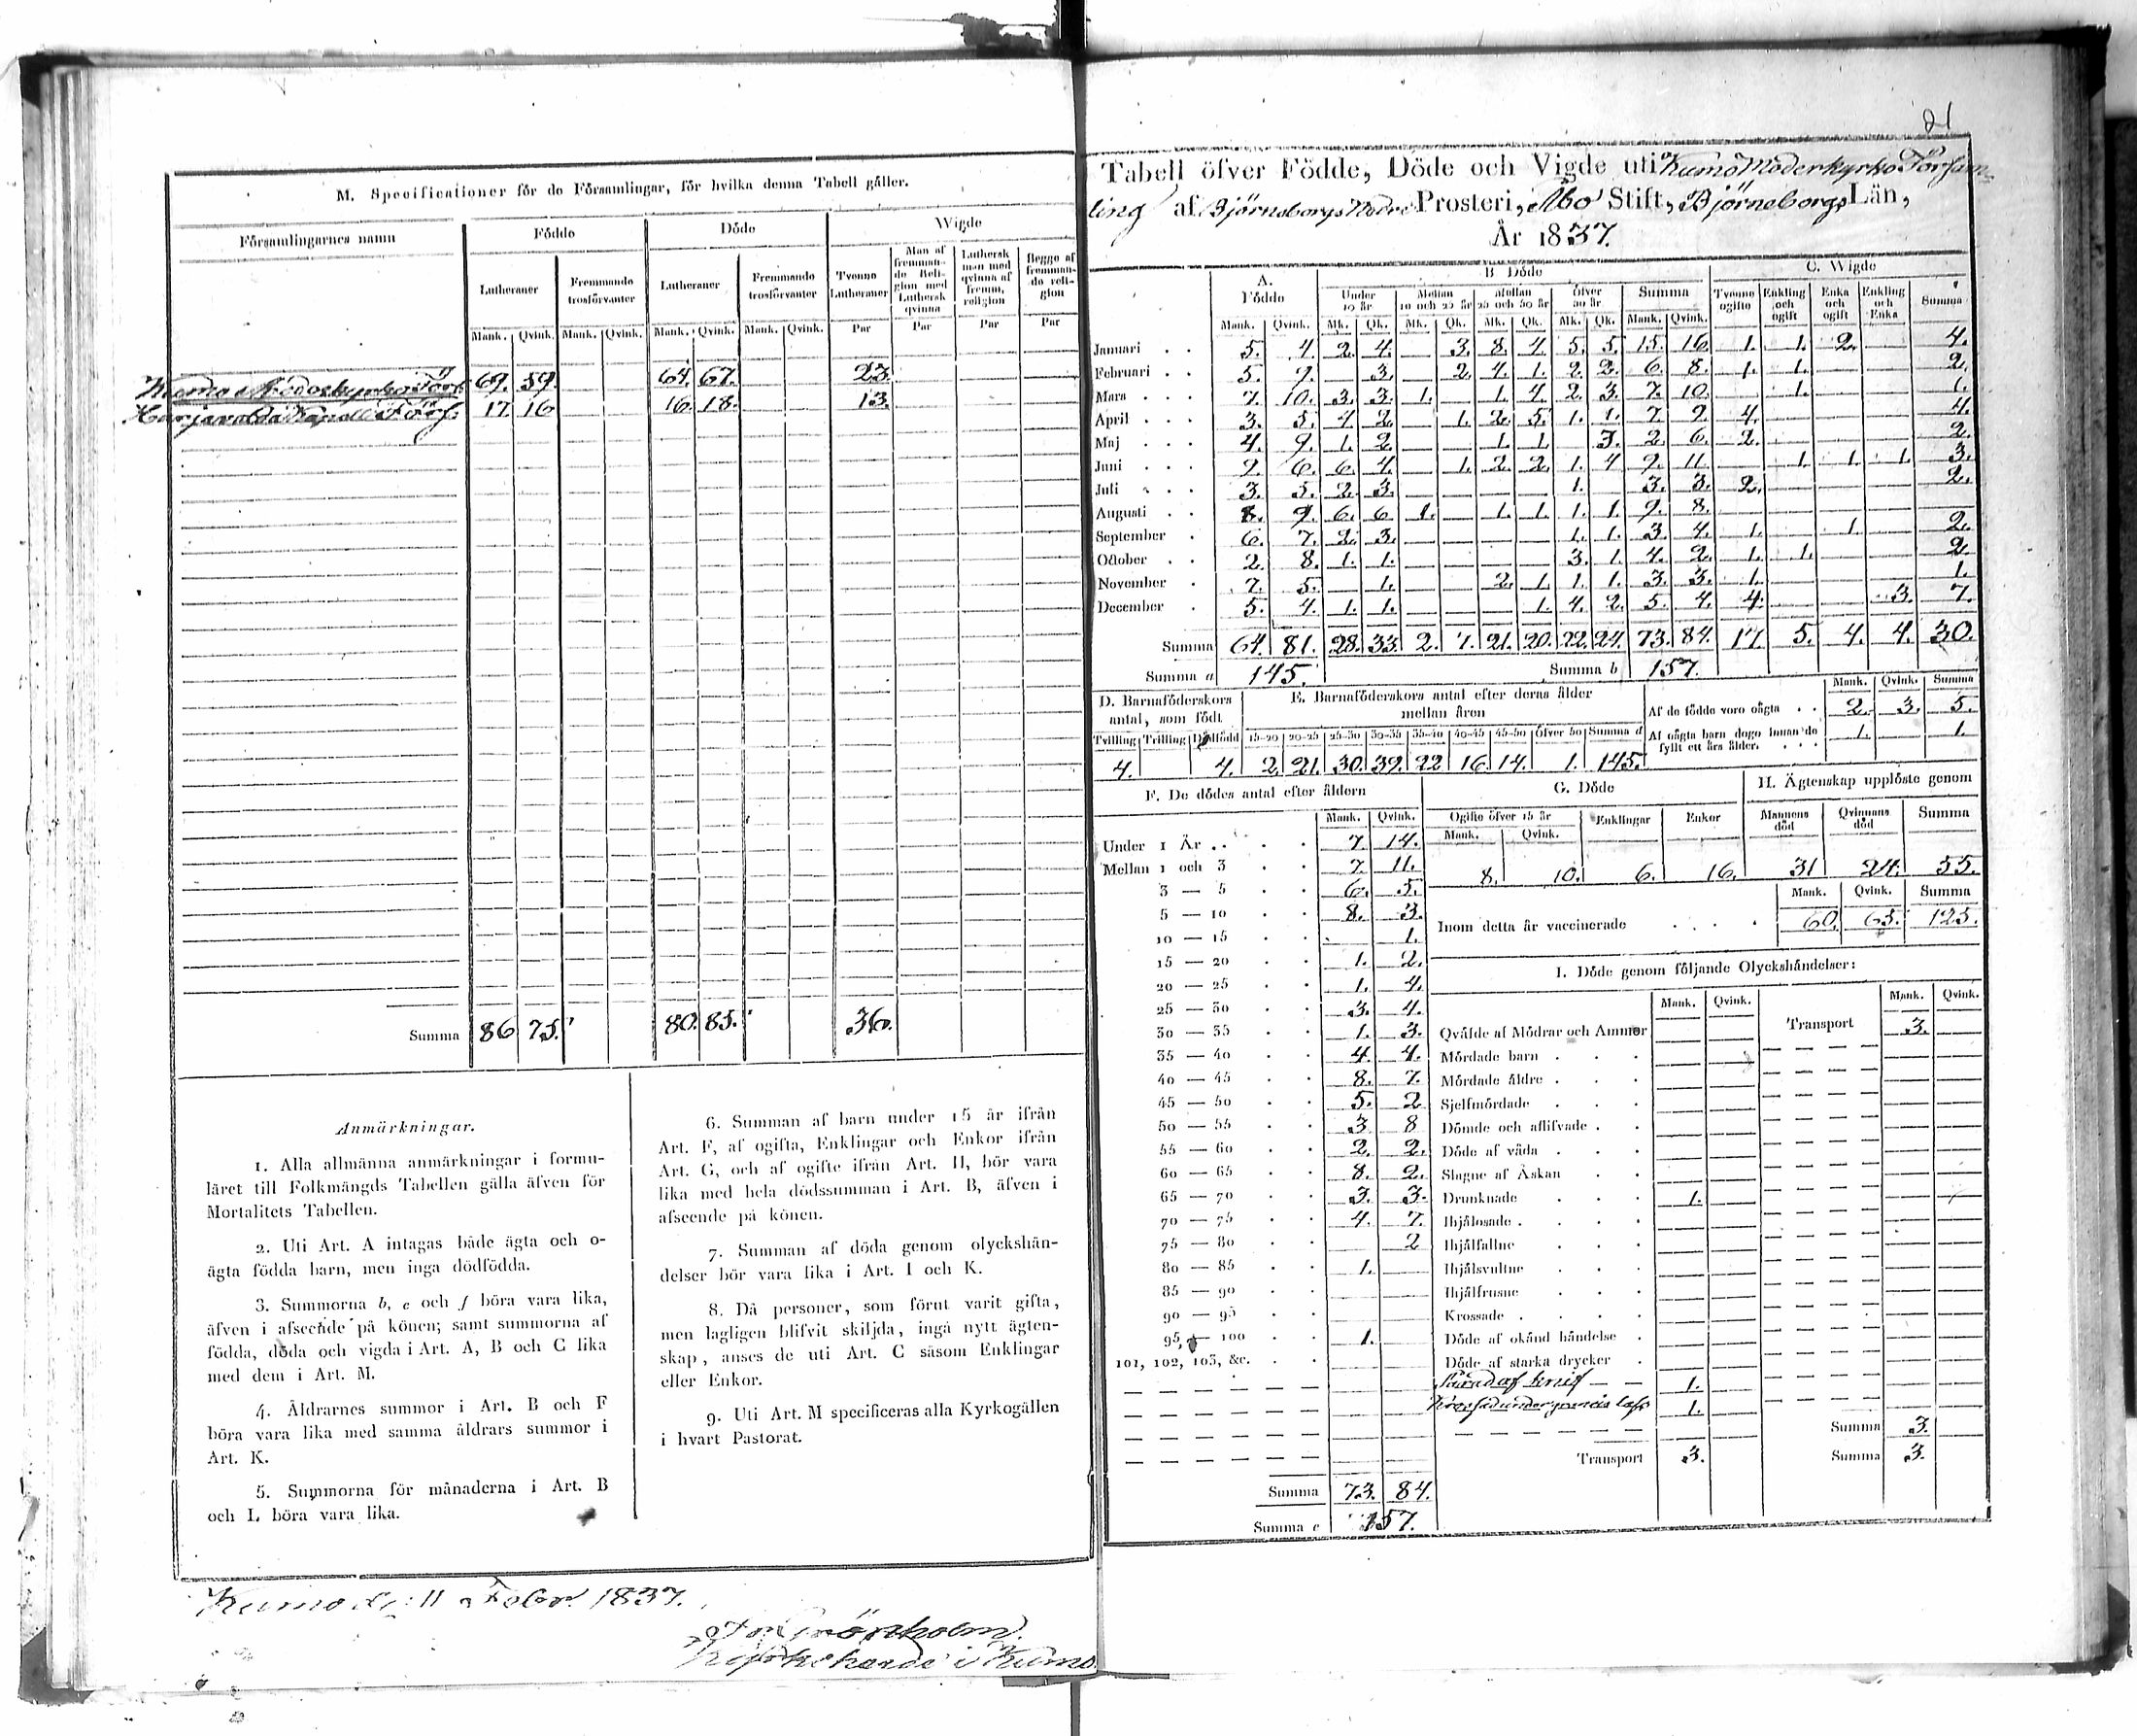 M. Specificationer för de Församlingar, för hvilka denna Tabell gäller.
Församlingarnes namn Födde Döde Wigde
Lutheraner Fremmande trosförvanter Lutheraner Fremmande trosförvanter Tvenne Lutheraner Man af fremmande Religion med Luthersk qvinna Luthersk man med qvinna af fremm. religion Begge af fremmande religion
Mank. Qvink. Mank. Qvink. Mank. Qvink. Mank. Qvink. Par Par Par Par
Kumo Moderkyrko Förs. 69. 59. 64. 67. 23.
Harjavalda Kapell Förs. 17. 16 16. 18. 13.
Summa 86 75. 80. 85. 36.
Anmärkningar.
1. Alla allmänna anmärkningar i formu-
läret till Folkmängds Tabellen gälla äfven för
Mortalitets Tabellen.
2. Uti Art. A intagas både ägta och o-
ägta födda barn, men inga dödfödda.
3. Summorna b, e och f böra vara lika,
äfven i afseende på könen; samt summorna af
födda, döda och vigda i Art. A, B och C lika
med dem i Art. M.
4. Åldrarnes summor i Art. B och F
böra vara lika med samma åldrars summor i
Art. K.
5. Summorna för månaderna i Art. B
och L böra vara lika.
6. Summan af barn under 15 år ifrån
Art. F, af ogifta, Enklingar och Enkor ifrån
Art. G, och af ogifte ifrån Art. H, bör vara
lika med hela dödssumman i Art. B, äfven i
afseende på könen.
7. Summan af döda genom olyckshän-
delser bör vara lika i Art. I och K.
8. Då personer, som förut varit gifta,
men lagligen blifvit skiljda, ingå nytt ägten-
skap, anses de uti Art. C såsom Enklingar
eller Enkor.
9. Uti Art. M specificeras alla Kyrkogällen
i hvart Pastorat.
Kumo d. 11 Febr. 1837.
Grönholm.
Kyrkoherde i Kumo
21
Tabell öfver Födde, Döde och Vigde uti Kumo Moderkyrko Försam-
ling af Björneborgs Nedre Prosteri, Åbo Stift, Björneborgs Län,
År 1837.
A. Födde B Döde C. Wigde
Under 10 år Mellan 10 och 25 år Mellan 25 och 50 år öfver 50 år Summa Tvenne ogifte Enkling och ogift Enka och ogift Enkling och Enka Summa
Mank. Qvink. Mk. Qk. Mk. Qk. Mk. Qk. Mk. Qk. Mank. Qvink.
Januari 5. 4. 2. 4. — 3. 8. 4. 5. 5. 15. 16. 1. 1. 2. 4.
Februari 5. 9. — 3. — 2. 4. 1. 2. 2. 6. 8. 1. 1. 2.
Mars 7. 10. 3. 3. 1. — 1. 4. 2. 3. 7. 10. 1. 1.
April 3. 5. 4. 2. — 1. 2. 5. 1. 1. 7. 9. 4. 4.
Maj 4. 9. 1. 2. 1. 1. 3. 2. 6. 2. 2.
Juni 9. 6. 6. 4. — 1. 2. 2. 1. 4. 9. 11. 1. 1. 1. 3.
Juli 3. 5. 2. 3. 1. 3. 3. 2. 2.
Augusti 8. 9. 6. 6. 1. — 1. 1. 1. 1. 9. 8.
September 6. 7. 2. 3. 1. 1. 3. 4. 1. 1. 2.
October 2. 8. 1. 1. 3. 1. 4. 2. 1. 1. 2.
November 7. 5. — 1. 2. 1. 1. 1. 3. 3. 1. 1.
December 5. 4. 1. 1. 1. 4. 2. 5. 4. 4. 3. 7.
Summa 64. 81. 28. 33. 2. 7. 21. 20. 22. 24. 73. 84. 17. 5. 4. 4. 30.
Summa a 145. Summa b 157.
D. Barnaföderskors antal, som födt
Tvilling Trilling Dödfödd
4. 4.
E. Barnaföderskors antal efter deras ålder
mellan åren
15-20 20-25 25-30 30-35 35-40 40-45 45-50 öfver 50 Summa d
2. 21. 30. 39. 22 16. 14. 1. 145.
Mank. Qvink. Summa
Af de födde voro oägta 2. 3. 5.
Af oägta barn dogo innan de
fyllt ett års ålder. 1. 1.
F. De dödes antal efter åldern
Mank. Qvink.
Under 1 År 7. 14.
Mellan 1 och 3 7. 11.
3 — 5 6. 5.
5 — 10 8. 3.
10 — 15 1.
15 — 20 1. 2.
20 — 25 1. 4.
25 — 30 3. 4.
30 — 35 1. 3.
35 — 40 4. 4.
40 — 45 8. 7.
45 — 50 5. 2
50 — 55 3 8
55 — 60 2. 2.
60 — 65 8. 2.
65 — 70 3. 3.
70 — 75 4. 7.
75 — 80 2
80 — 85 1.
85 — 90
90 — 95
95 — 100 1.
101, 102, 103, &c.
Summa 73. 84.
Summa e 157.
G. Döde
Ogifte öfver 15 år Enklingar Enkor
Mank. Qvink.
8. 10. 6. 16.
H. Ägtenskap upplöste genom
Mannens död Qvinnans död Summa
31 24. 55.
Mank. Qvink. Summa
Inom detta år vaccinerade 60. 65. 125.
I. Döde genom följande Olyckshändelser:
Mank. Qvink. Mank. Qvink.
Qväfde af Mödrar och Ammor Transport 3.
Mördade barn
Mördade äldre
Sjelfmördade
Dömde och aflifvade
Döde af våda
Slagne af Åskan
Drunknade 1.
Ihjälosade
Ihjälfallne
Ihjälsvultne
Ihjälfrusne
Krossade
Döde af okänd händelse
Döde af starka drycker
Sårad af knif 1.
under 1.
Summa 3.
Transport 3. Summa 3.